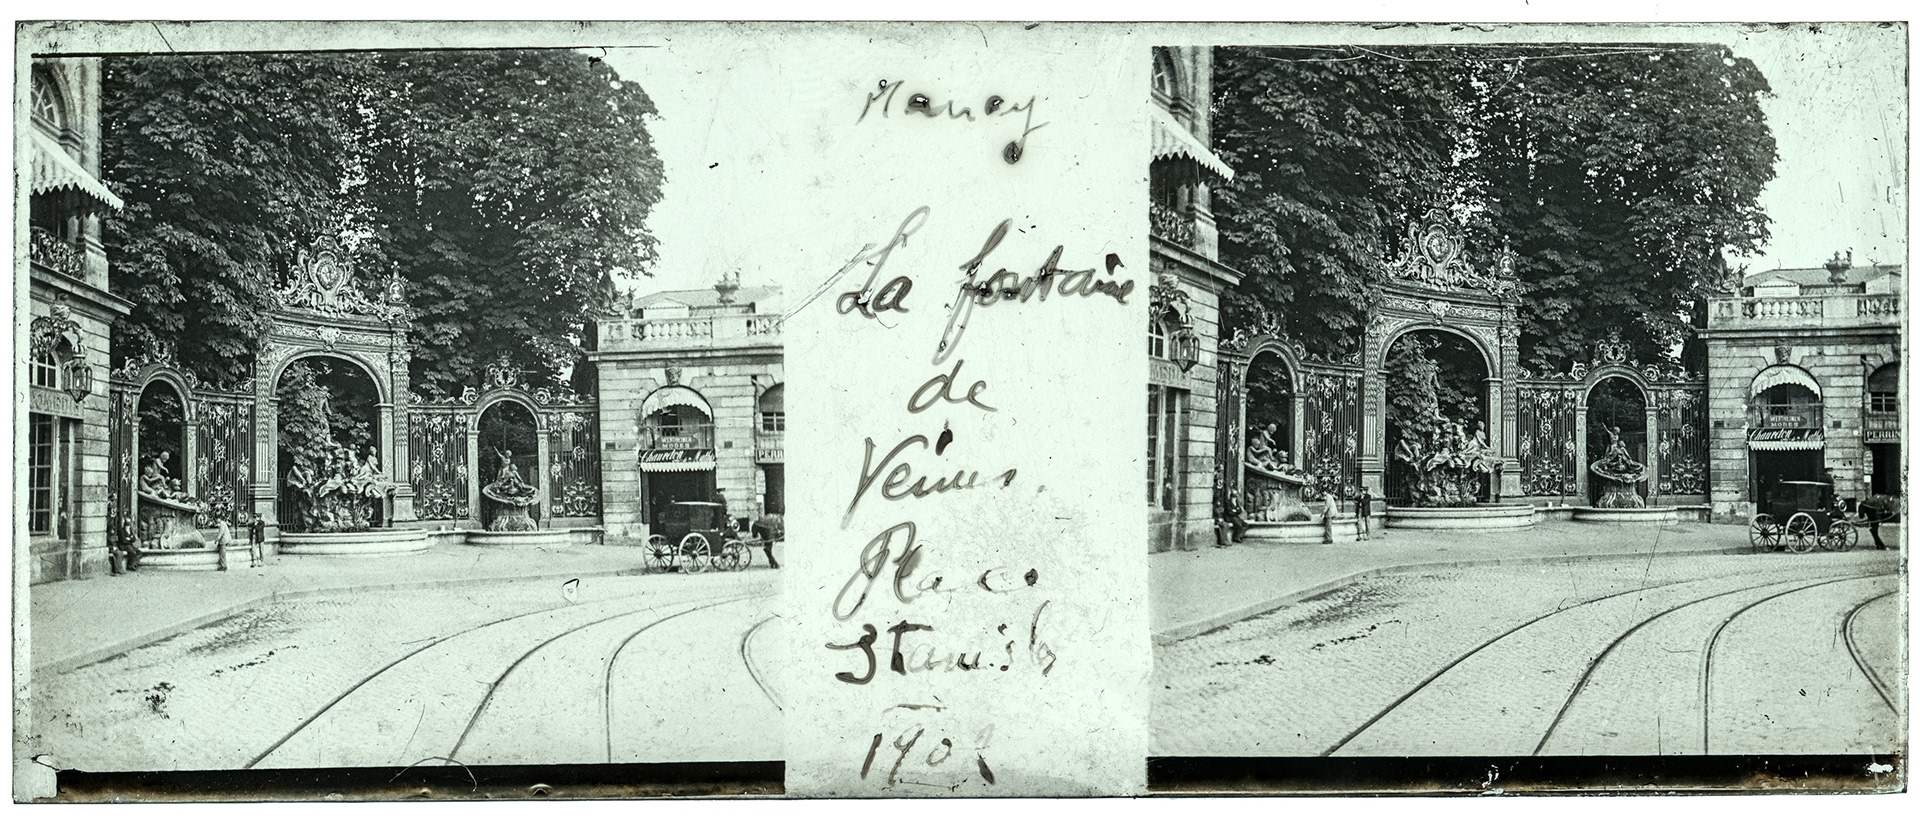 Nancy
La fontaine
de
Venus.
Place
Stanislas
190
MODES
PERRIN
MODES
PERRIN